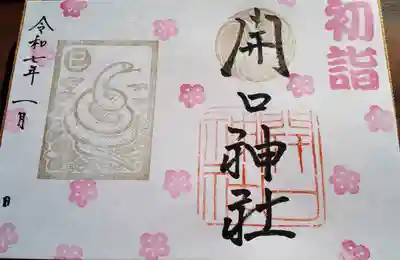 初詣
開口神社
巳
令和七年 一月
日